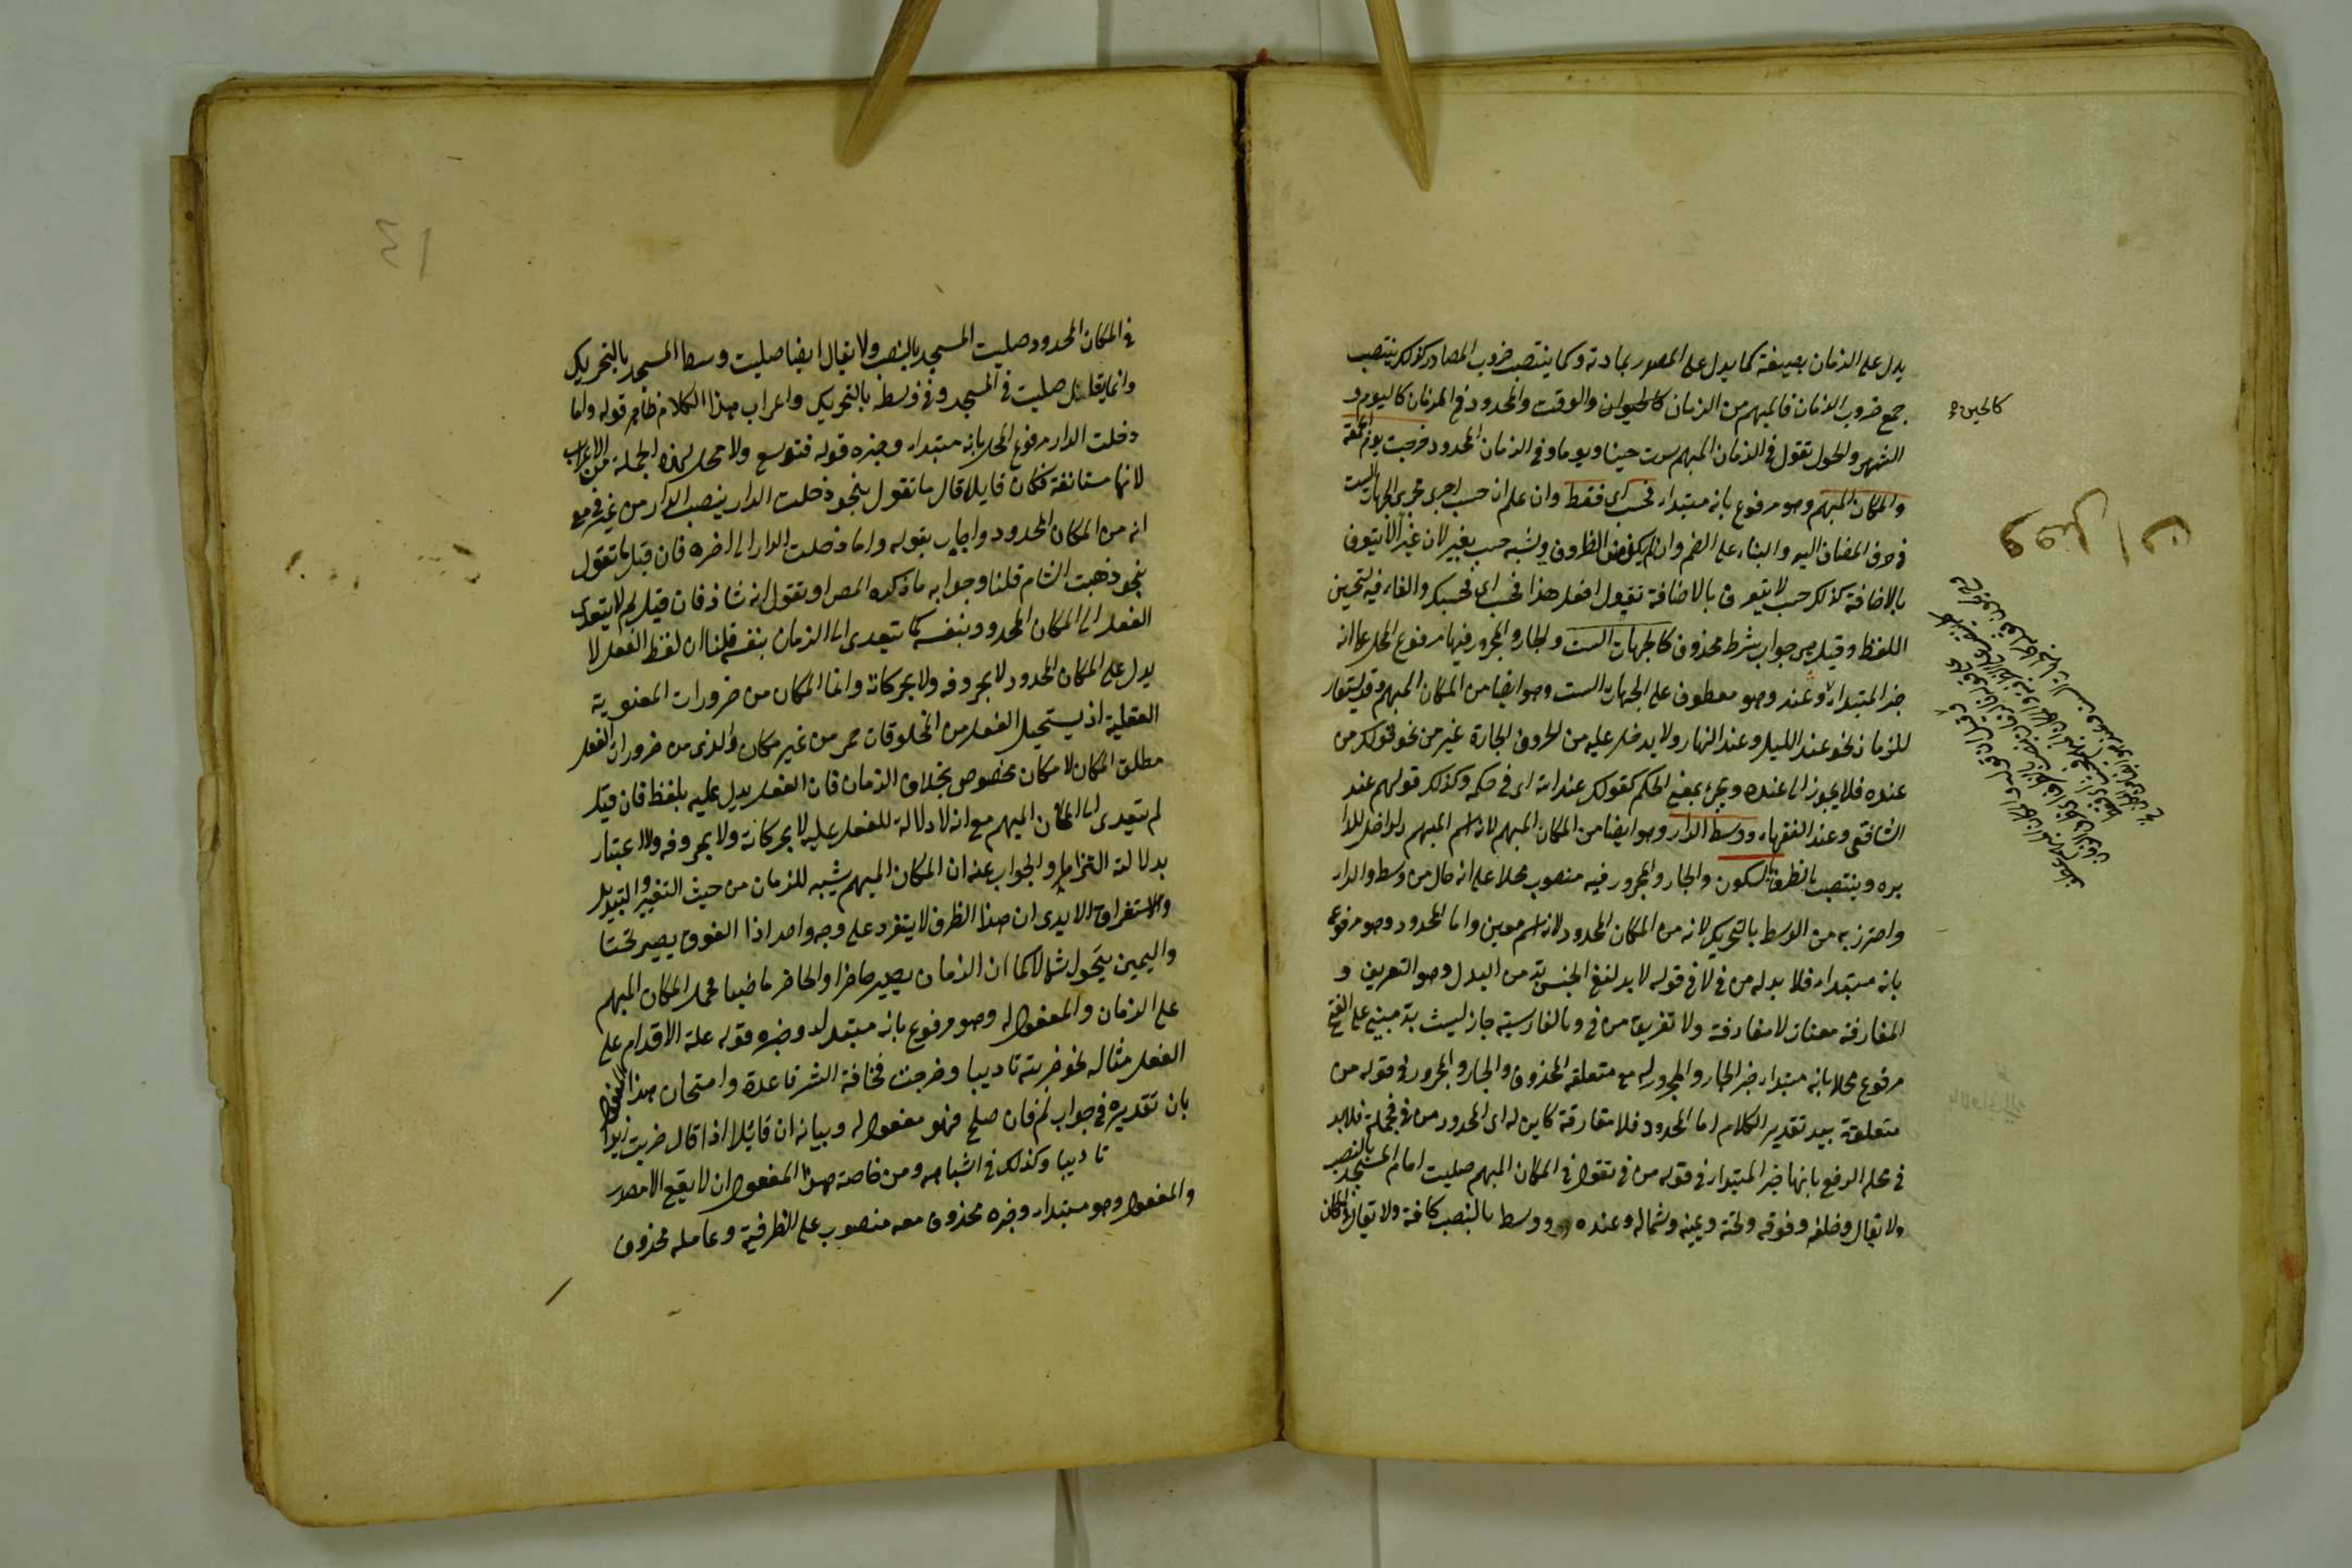 يدل على الزمان بصيغته كما يدل على المصدر بمادته وكما ينتصب ضروب المصادر كذلك ينتصب
جميع ضروب الزمان فالمبهم من الزمان كالحيوان والوقت والمحدود في الزمان كاليوم و
الشهر والحول تقول في الزمان المبهم سرت حينا ويوما وفي الزمان المحدود خرجت يوم الجمعة
والمكان المبهم وهو مرفوع بانه مبتداء فحسب اى فقط وان علم ان حسب اجرى مجرى الجهات الست
في حذف المضاف اليه والبناء على الضم وان لم يكن من الظروف وشبه حسب بغير لان غير لا يتعرف
بالاضافة كذلك حسب لا يتعرف بالاضافة تقول افعل هذا فحسب اى فحسبك والفاء فيه لتحسين
اللفظ وقيل هى جواب شرط محذوف كالجهات الست والجار والمجرور فيها مرفوع المحل على انه
خبر المبتداء وعند وهو معطوف على الجهات الست وهو ايضا من المكان المبهم وقد يستعار
للزمان نحو عند الليل وعند النهار ولا يدخل عليه من الحروف الجارة غير من نحو قولك من
عنده فلا يجوز الى عنده ويجئ بمعنى الحكم كقولك عند الله اى في حكمه وكذلك قولهم عند
الشافعى وعند الفقهاء ووسط الدار وهو ايضا من المكان المبهم لانه اسم المبهم لداخل الدا
يره وينتصب بالظرف السكون والجار والمجرور فيه منصوب محلا على انه حال من وسط والدار
واحترز به من الوسط بالتحريك لانه من المكان المحدود لانه اسم معين واما المحدود وهو مرفوع
بانه مبتداء فلا بد له من في لا في قوله لا بد لنفى الجنس بد من البدل وهو التعريف و
المفارقة معناه لا مفارقة ولا تفريق من في وبالفارسية جاز ليست بد مبنى على الفتح
مرفوع محلا بانه مبتداء خبره الجار والمجرور له مع متعلقه المحذوف والجار والمجرور في قوله من
متعلقة ببد تقدير الكلام اما المحدود فلا مفارقة كاين له اى المحدود من في فجملة فلابد
في محل الرفع بانها خبر المبتداء في قوله من في تقول في المكان المبهم صليت امام المسجد بالنصب
ولا يقال وخلفه وفوقه وتحته ويمينه وشماله وعنده ووسط بالنصب كافة ولا يقال في المكان
كالحين
في المكان المحدود صليت المسجد بالنصب ولا يقال ايضا صليت وسط المسجد بالتحريك
وانما يقال صليت في المسجد وفي وسطه بالتحريك واعراب هذا الكلام ظاهر قوله واما
دخلت الدار مرفوع المحل بانه مبتداء وخبره قوله فتوسع ولا محل لهذه الجملة من الاعراب
لانها مستانفة فكان قايلا قال ما تقول بنحو دخلت الدار ينصب الدار من غير في مع
انه من المكان المحدود واجاب بقوله واما دخلت الدار الى اخره فان قيل ما تقول
بنحو ذهبت الشام قلنا وجوابه ما ذكره المص او نقول انه شاذ فان قيل لم لا يتعدى
الفعل الى المكان المحدود بنفسه كما يتعدى الى الزمان بنفسه قلنا ان لفظ الفعل لا
يدل على المكان المحدود لا بحروفه ولا بحركاته وانما المكان من ضرورات المعنوية
العقلية اذ يستحيل الفعل من المخلوقات من غير مكان والذى من ضرورات الفعل
مطلق المكان لا مكان مخصوص بخلاف الزمان فان الفعل يدل عليه بلفظه فان قيل
لم يتعدى الى المكان المبهم مع انه لا دلالة للفعل عليه لا بحركاته ولا بحروفه ولا اعتبار
بدلالته التزاما والجواب عنه ان المكان المبهم يشبه للزمان من حيث التغيير والتبديل
والاستغراق الا يرى ان هذا الظرف لا ينفرد على وجه واحد اذا الفوق يصير تحتا
واليمين يتحول شمالا كما ان الزمان يصير حاضرا والحاضر ماضيا فحمل المكان المبهم
على الزمان والمفعول له وهو مرفوع بانه مبتداء وخبره قوله علة الاقدام على
الفعل مثاله نحو ضربته تاديبا وخرجت مخافة الشر قاعدة وامتحان هذا المفعول
بان تقديره في جواب لم فان صلح فهو مفعول له وبيانه ان قائلا اذا قال ضربت زيدا
تاديبا وكذلك في اشباهه ومن خاصة هذا المفعول ان لا يقع الا مصدر
والمفعول وهو مبتداء وخبره محذوف معه منصوب على الظرفية وعامله محذوف